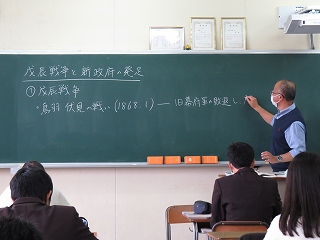 戊辰戦争と新政府の発足
①戊辰戦争
・鳥羽伏見の戦い(1868.1) ― 旧幕府軍の敗退し